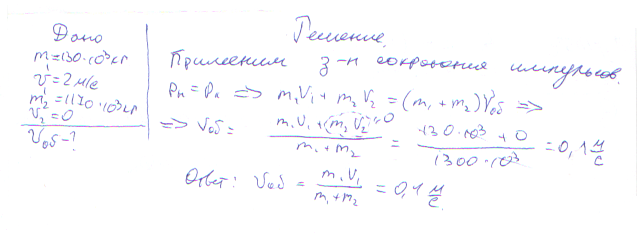 Дано
m₁=130·10³кг
v₁=2 м/с
m₂=1170·10³кг
V₂=0
Vоб-?
Решение.
Применим з-н сохранения импульсов.
pн = pк => m₁V₁ + m₂V₂ = (m₁+m₂)Vоб =>
=> Vоб = (m₁V₁ + (m₂V₂)=0)/(m₁+m₂) = (130·10³ + 0)/(1300·10³) = 0,1 м/с
Ответ: Vоб = m₁V₁/(m₁+m₂) = 0,1 м/с.